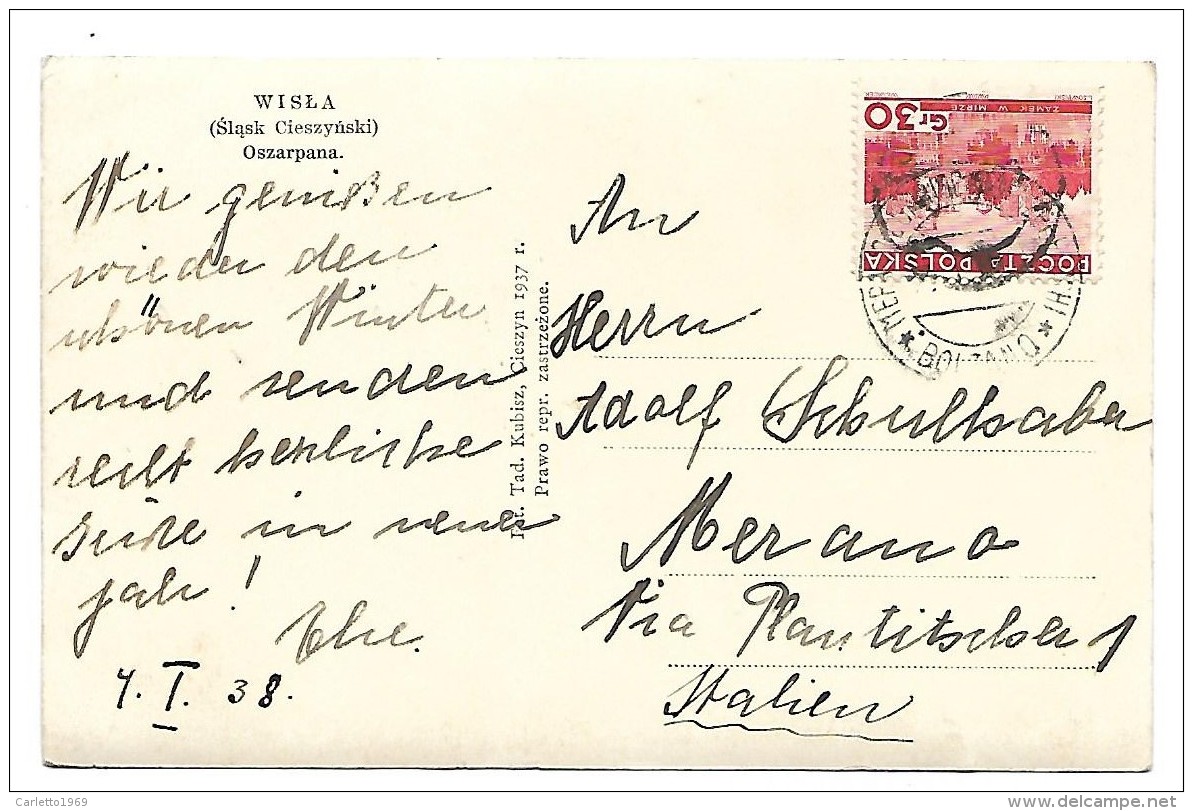 WISŁA
(Śląsk Cieszyński)
Oszarpana.
Wir genißen
wieder den
schönen Winter
und senden
recht herzliche
Grüße in neuen
Jahr!
Else.
4. I. 38.
Tad. Kubisz, Cieszyn 1937 r.
Prawo repr. zastrzeżone.
Gr 30
ZAMEK W MIRZE
POCZTA POLSKA
BOLZANO
An
Herrn
Adolf
Merano
Via 1
Italien
Carletto1969
www.delcampe.net